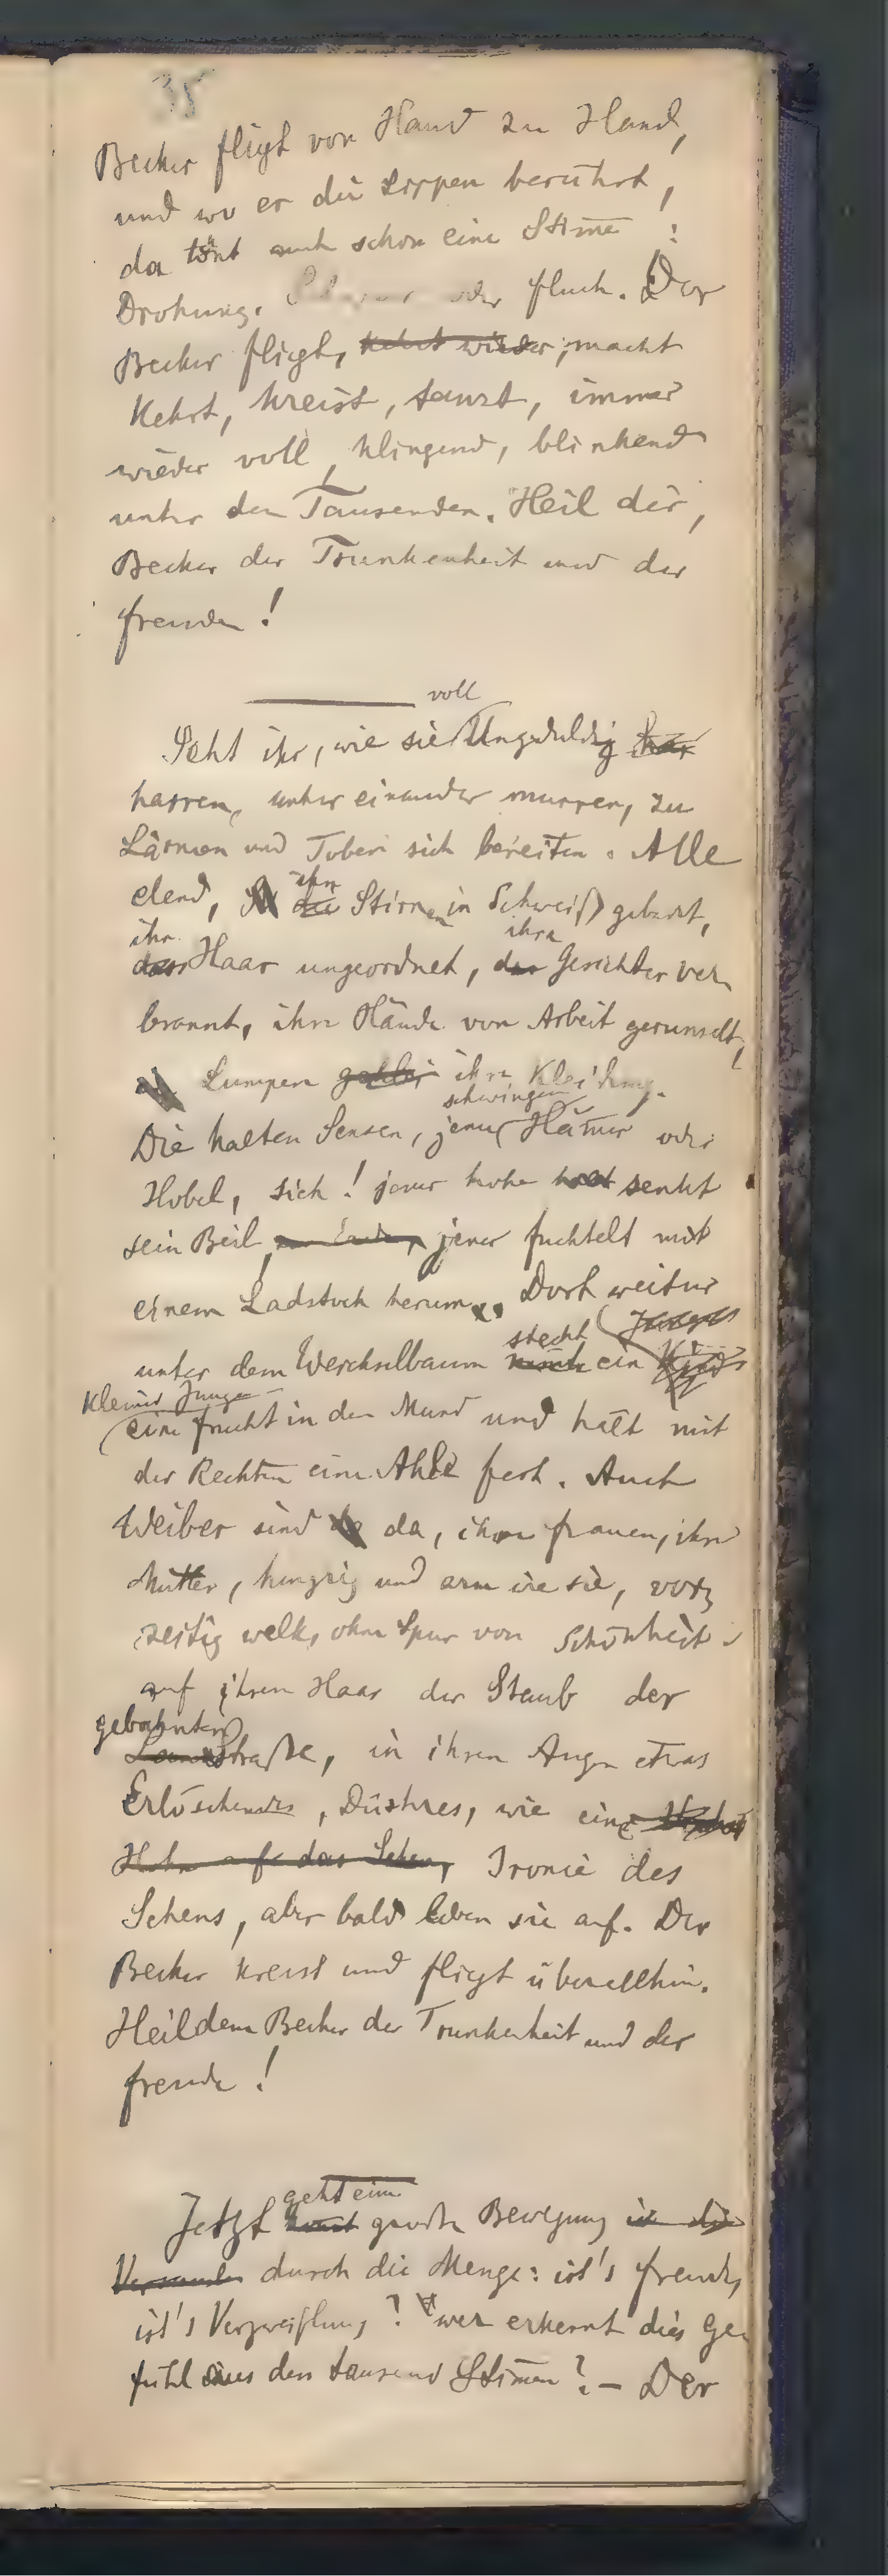 35
Becher fliegt von Hand zu Hand,
und wo er die Lippen berührt,
da tönt auch schon eine Stimme:
Drohung, oder Fluch. Der
Becher fliegt, kehrt wieder, macht
Kehrt, kreist, tanzt, immer
wieder voll, klingend, blinkend
unter den Tausenden. Heil dir,
Becher der Trunkenheit und der
Freude!
voll
Seht ihr, wie sie Ungeduldig har
harren, unter einander murren, zu
Lärmen und Toben sich bereiten. Alle
ihre
elend, die Stirnen in Schweiß gebadet,
ihr ihre
das Haar ungeordnet, der Gesichter ver-
brannt, ihre Hände von Arbeit gerunzelt,
Lumpen ihre Kleidung.
schwingen
Die halten Sensen, jene Hämmer oder
Hobel, sieh! jener hohe senkt
sein Beil, jener fuchtelt mit
einem Ladstock herum. Dort weiter
steckt Junges
unter dem Weichselbaum ein Kind
kleiner Junge
eine Frucht in den Mund und hält mit
der Rechten eine Ahle fest. Auch
Weiber sind da, ihre Frauen, ihre
Mütter, hungrig und arm wie sie, vor-
zeitig welk, ohne Spur von Schönheit.
auf ihrem Haar der Staub der
gebahnten
Landstraße, in ihren Augen etwas
Erlöschendes, Düstres, wie eine
Hohn auf das Leben, Ironie des
Lebens, aber bald leben sie auf. Der
Becher kreist und fliegt überallhin.
Heil dem Becher der Trunkenheit und der
Freude!
geht eine
Jetzt kommt große Bewegung in die
Versamml durch die Menge: ist's Freude,
ist's Verzweiflung? wer erkennt dies Ge-
fühl aus den tausend Stimmen? – Der